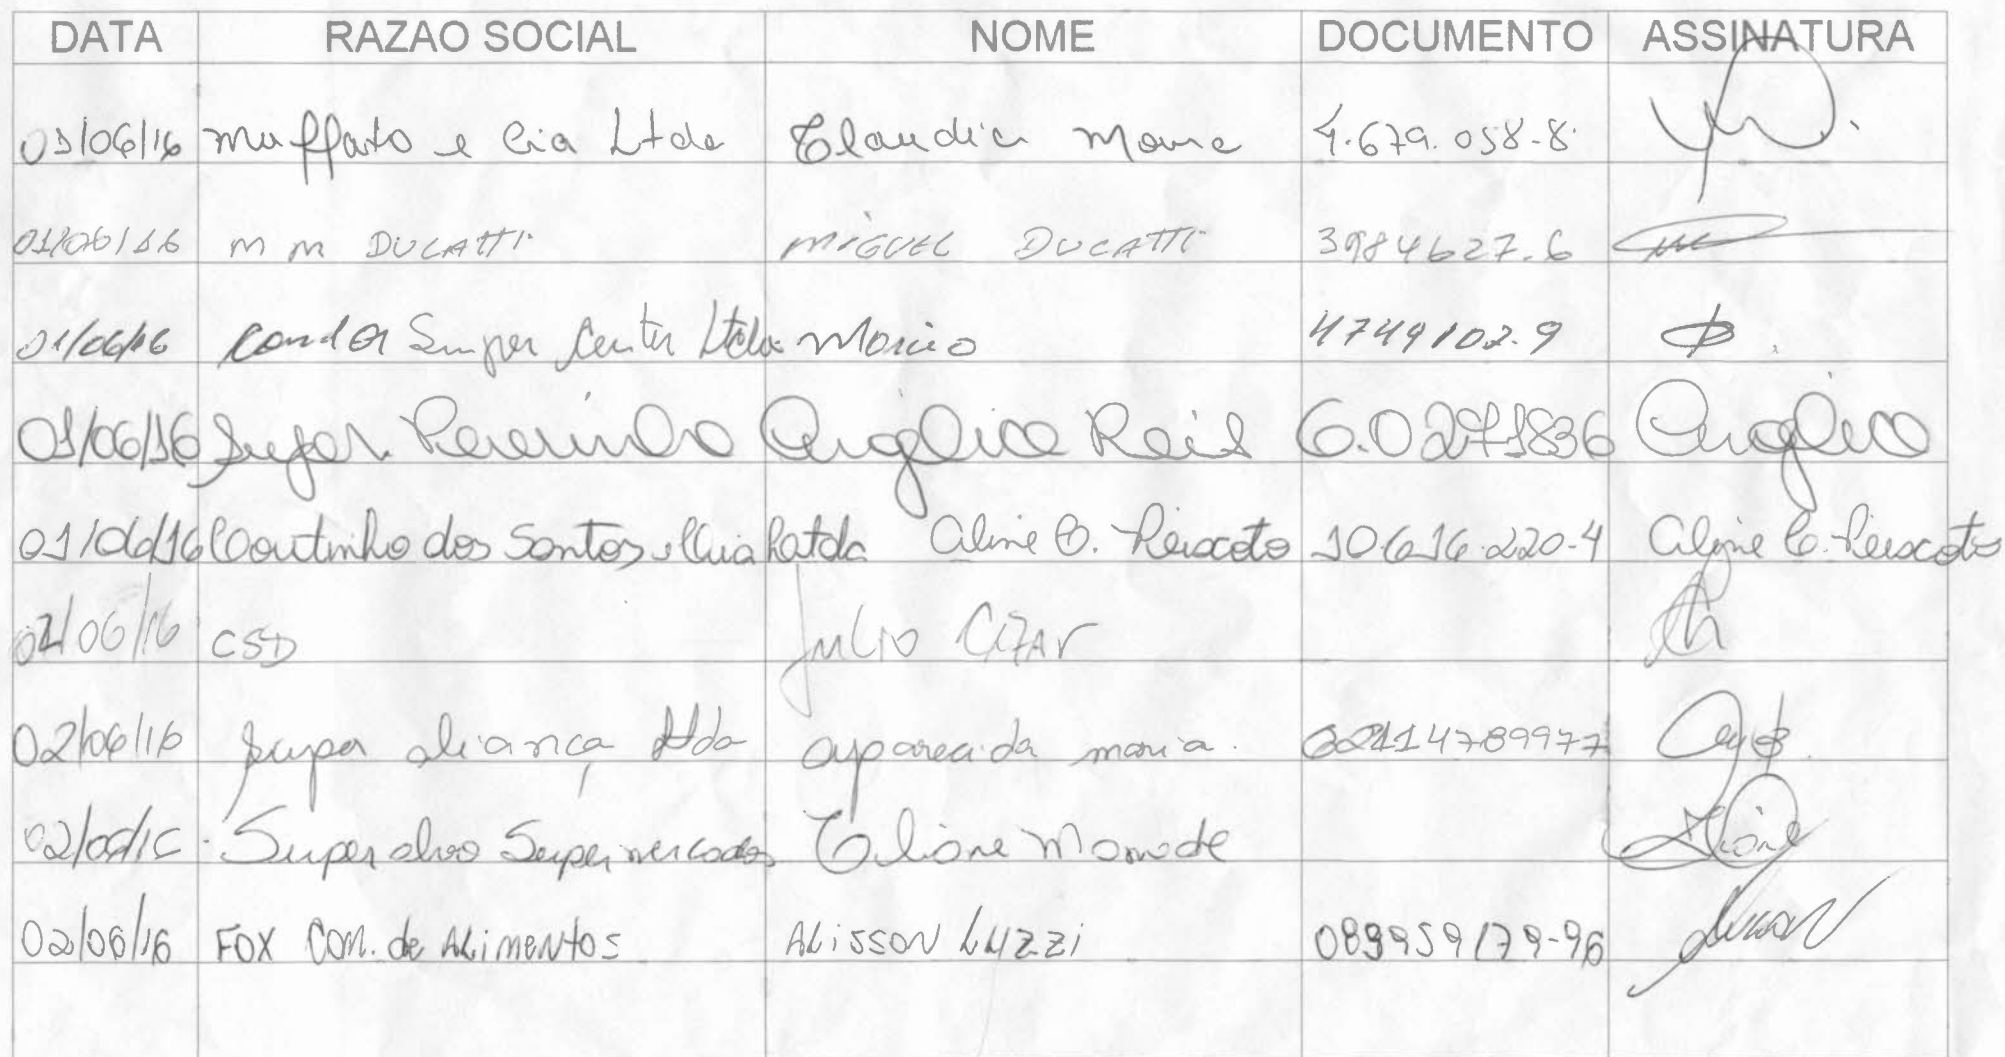 DATA RAZAO SOCIAL NOME DOCUMENTO ASSINATURA
01/06/16 Muffato e Cia Ltda Claudia Moura 4.679.058-8
01/06/16 M M DUCATTI MIGUEL DUCATTI 3984627.6
01/06/16 Condor Super Center Ltda Marcio 4749102.9
01/06/16 Super Pererinha Angélica Reis 6.0271836 Angélica
01/06/16 Coutinho dos Santos e Cia Ltda Aline C. Peixoto 10616.220-4 Aline C. Peixoto
02/06/16 CSD JULIO CEZAR
02/06/16 Super aliança Ltda aparecida maria. 02114789977
02/06/16 Super alvo Supermercados Eliane
02/06/16 FOX COM. de ALIMENTOS ALISSON LUZZI 089959179-96